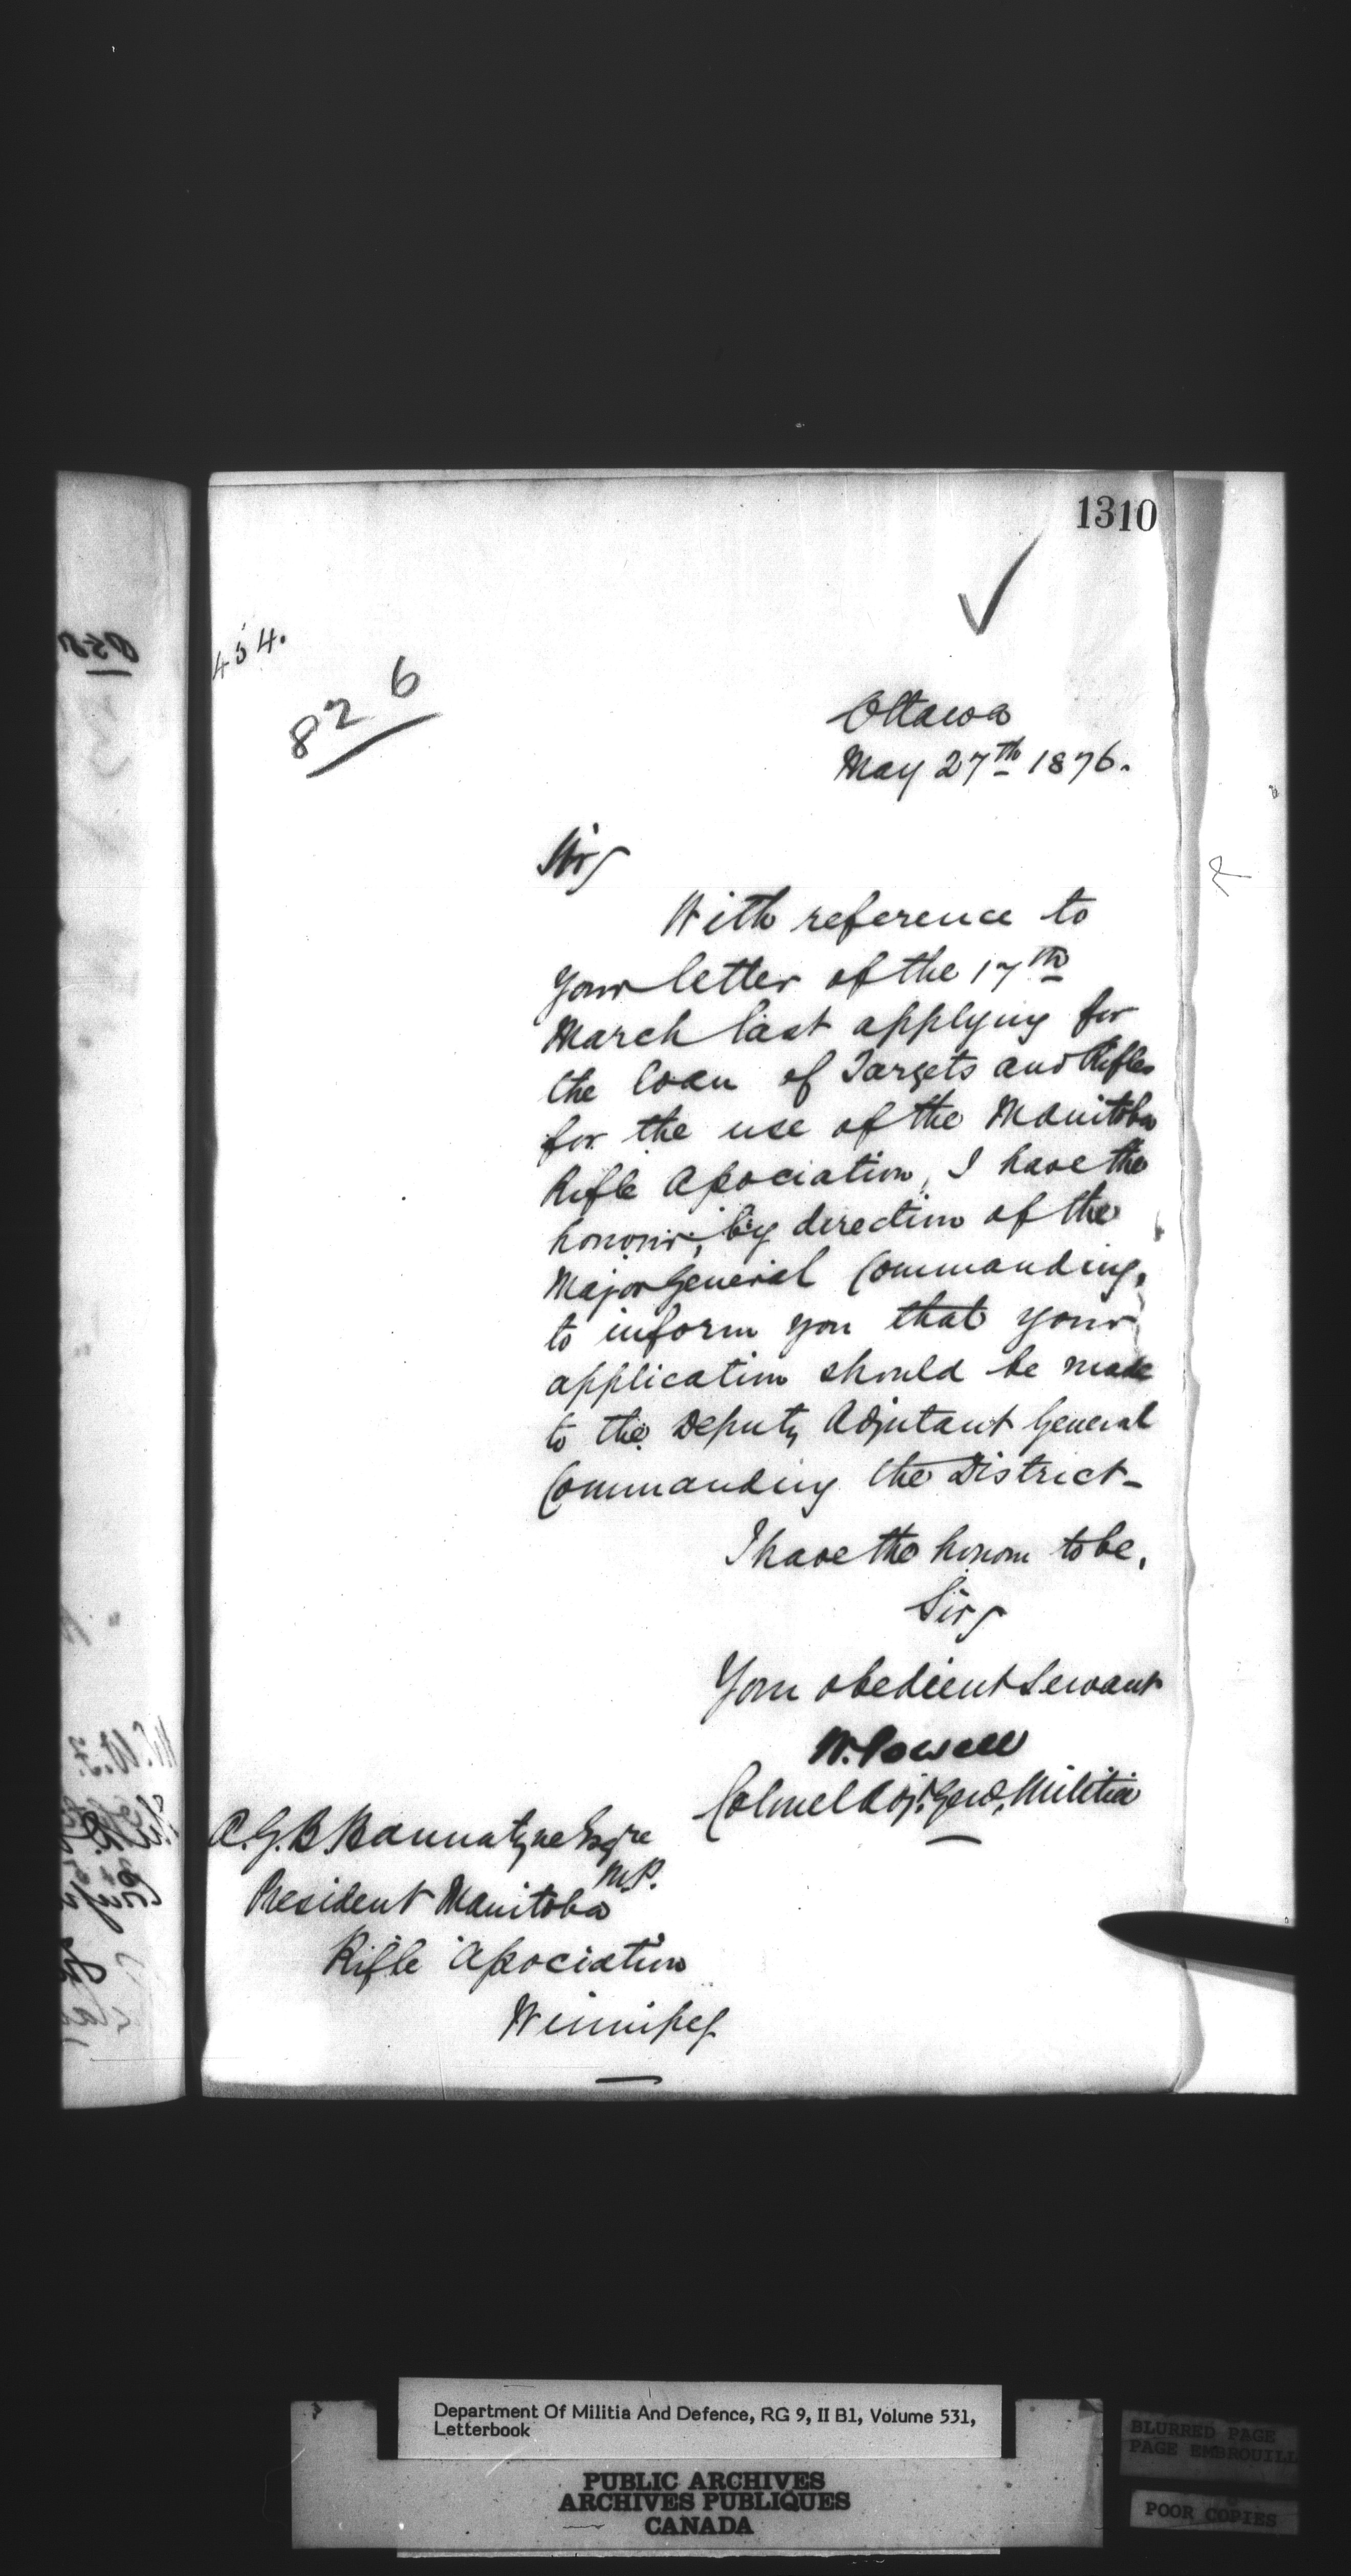 1310
454.
826
Ottawa
May 27th 1876.
Sir,
With reference to
your letter of the 17th
March last applying for
the loan of Targets and Rifles
for the use of the Manitoba
Rifle Association, I have the
honour, by direction of the
Major General Commanding,
to inform you that your
application should be made
to the Deputy Adjutant General
Commanding the District-
I have the honour to be,
Sir,
Your obedient Servant
W. Powell
Colonel Adjt. Genl. Militia
A. G. B. Bannatyne Esqre
M.P.
President Manitoba
Rifle Association
Winnipeg
Department Of Militia And Defence, RG 9, II B1, Volume 531,
Letterbook
PUBLIC ARCHIVES
ARCHIVES PUBLIQUES
CANADA
BLURRED PAGE
PAGE EMBROUILL
POOR COPIES